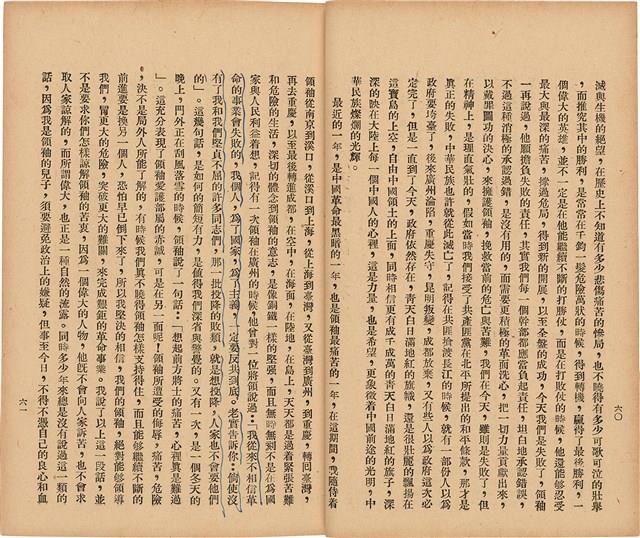 滅與生機的絕望，在歷史上不知道有多少悲傷痛苦的慘局，也不曉得有多少可歌可泣的壯舉
，而推究其中的勝利，是常常在千鈞一髮危險萬狀的時候，得到轉機，贏得了最後勝利，一
個偉大的英雄，並不一定是在他能繼續不斷的打勝仗，而是在打敗仗的時候，他還能够忍受
最大與最深的痛苦，撐過危局，得到新的開展，以至全盤的成功，今天我們是失敗了，領袖
一再說過，他願擔負失敗的責任，其實我們每一個幹部都應當負起責任，坦白地承認錯誤，
不過這種消極的承認過錯，是沒有用的，而需要更積極的革面洗心，把一切力量貢獻出來，
以戴罪圖功的決心，來擁護領袖，挽救當前的危亡與苦難，我們在今天，雖則是失敗了，但
在精神上，是理直氣壯的，假如當時我們接受了共產匪黨在北平所提出的和平條款，那才是
眞正的失敗，中華民族也許就從此滅亡了，記得在共匪搶渡長江的時候，就有一部份人以爲
政府要垮臺了，後來廣州淪陷，重慶失守，昆明叛變，成都放棄，又有些人以爲政府這次必
定完了，但是一直到了今天，政府依然存在，青天白日滿地紅的旗幟，還是很壯麗的飄揚在
這寶島的上空，自由中國領土的上面，同時相信更有成千成萬的青天白日滿地紅的旗子，深
深的映在大陸上每一個中國人的心裡，這是力量，也是希望，更象徵着中國前途的光明，中
華民族燦爛的光輝。
最近的一年，是中國革命最黑暗的一年，也是領袖最痛苦的一年，在這期間，我隨侍着
六〇
領袖從南京到溪口，從溪口到上海，從上海到臺灣，又從臺灣到廣州，到重慶，轉回臺灣，
再去重慶，以至最後轉進成都，在空中，在海面，在陸地，在島上，天天都是過着緊張苦難
和危險的生活，深切的體念到領袖的意志，是像銅鐵一樣的堅强，而且無時無刻不是在爲國
家與人民利益着想，記得有一次領袖在廣州的時候，他曾對一位將領說過：「我從來不相信革
命的事業會失敗的，我個人，爲了國家，爲了主義，一定要反共到底。老實告訴你：倘使沒
有了我和我們堅貞不屈的許多同志們，那一批投降的敗類，就是想投降，人家也不會要他們
的」。這幾句話，是如何的簡短有力，是値得我們深省與警覺的。又有一次，是一個冬天的
晚上，門外正在刮風落雪的時候，領袖說了一句話：「想起前方將士的痛苦，心裡眞是難過
」。這充分表現了領袖愛護部屬的赤誠，可是在另一面呢！領袖所遭受的侮辱，痛苦，危險
，決不是局外人所能了解的。有時候我們眞不曉得領袖怎樣支持得住，而且能够繼續不斷的
前進要是換另一個人，恐怕早已倒下來了，所以我堅決的相信，我們的領袖，絕對能够領導
我們，冒更大的危險，突破更大的難關，來完成艱鉅的革命事業。我說了以上這一段話，並
不是要求你們怎樣諒解領袖的苦衷，因爲一個偉大的人物，他旣不會向人家訴苦，也不會求
取人家諒解的，而所謂偉大，也正是一種自然的流露。同時多少年來總是沒有說過這一類的
話，因爲我是領袖的兒子，須要避免政治上的嫌疑，但事至今日，不得不憑自己的良心和血
六一